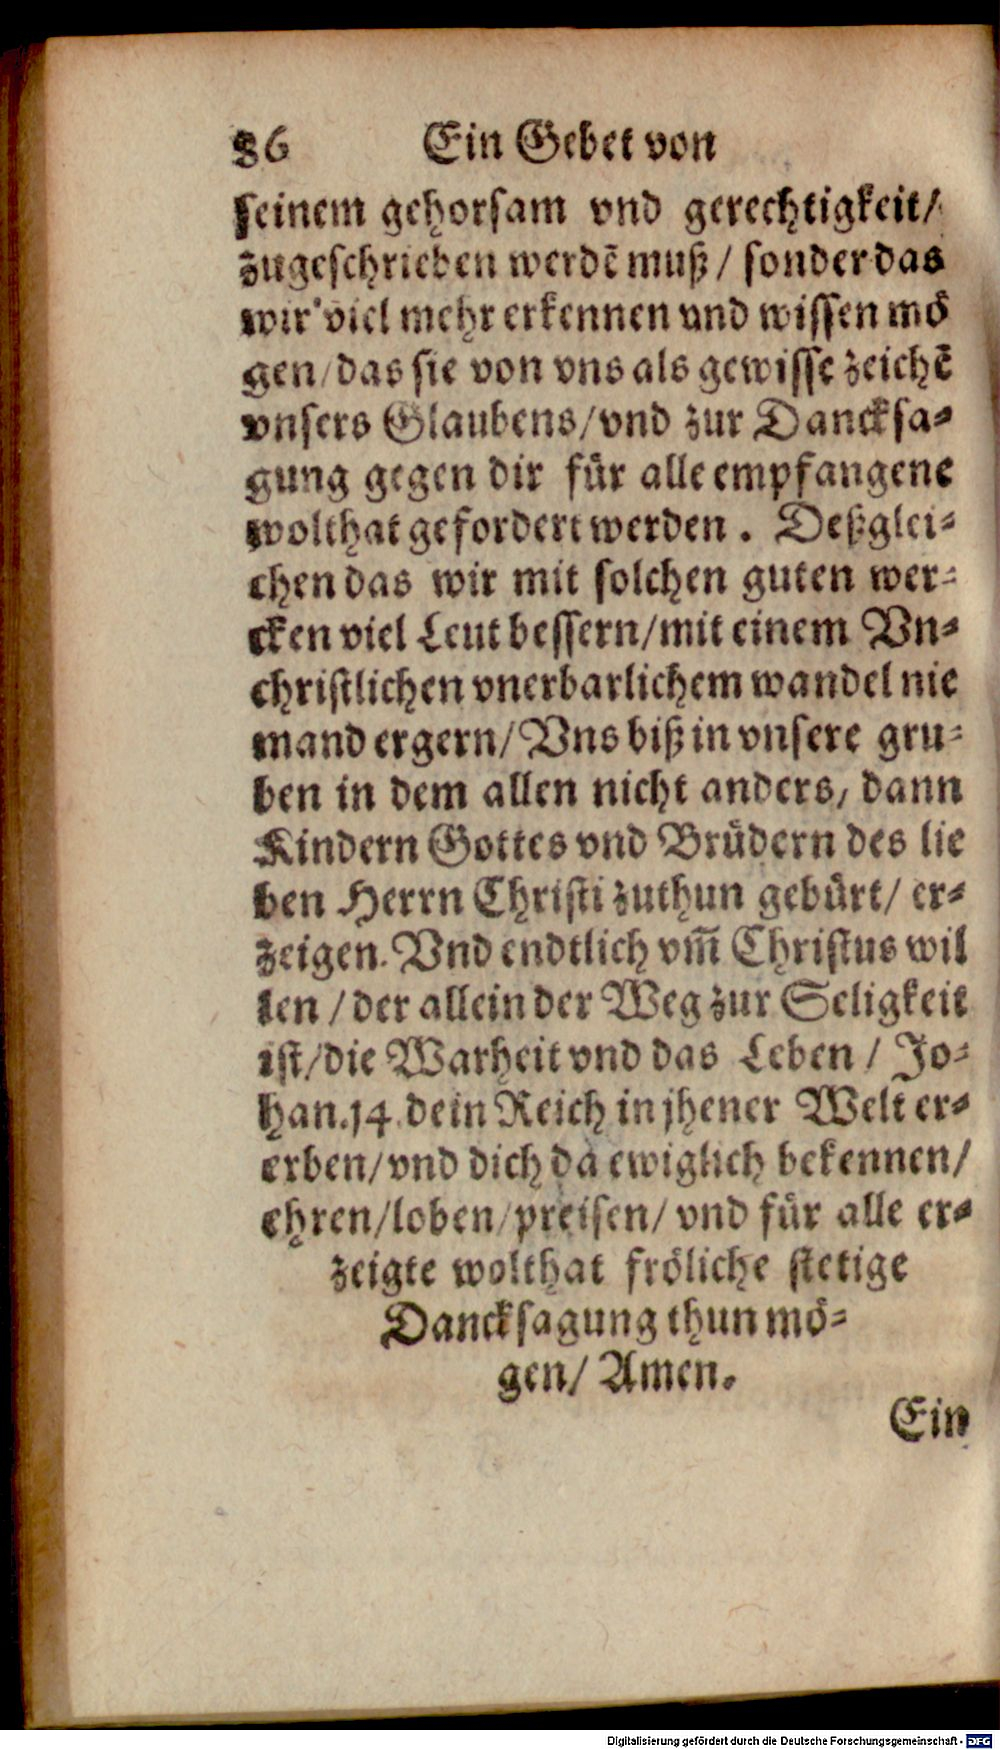 86 Ein Gebet von
seinem gehorsam vnd gerechtigkeit/
zugeschrieben werdẽ muß / sonder das
wir viel mehr erkennen vnd wissen mö
gen/das sie von vns als gewisse zeichẽ
vnsers Glaubens/vnd zur Dancksa-
gung gegen dir für alle empfangene
wolthat gefordert werden. Deßglei-
chen das wir mit solchen guten wer-
cken viel Leut bessern/mit einem Vn-
christlichen vnerbarlichem wandel nie
mand ergern/ Vns biß in vnsere gru-
ben in dem allen nicht anders, dann
Kindern Gottes vnd Brüdern des lie
ben Herrn Christi zuthun gebürt/ er-
zeigen. Vnd endtlich vm̃ Christus wil
len / der allein der Weg zur Seligkeit
ist/die Warheit vnd das Leben / Jo-
han.14. dein Reich in jhener Welt er-
erben/vnd dich da ewiglich bekennen/
ehren/loben/preisen/ vnd für alle er-
zeigte wolthat fröliche stetige
Dancksagung thun mö-
gen/ Amen.
Ein
Digitalisierung gefördert durch die Deutsche Forschungsgemeinschaft - DFG